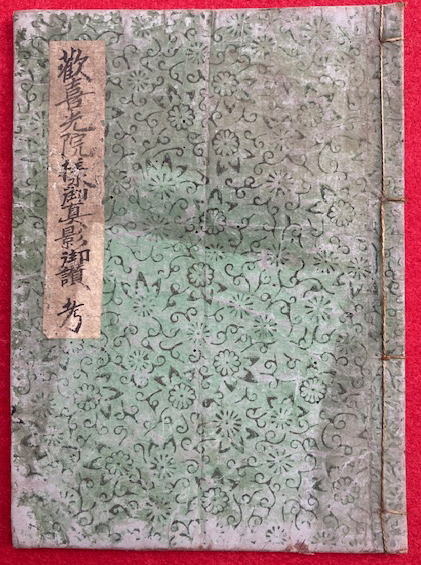 歡喜光院様御真影御讃、考